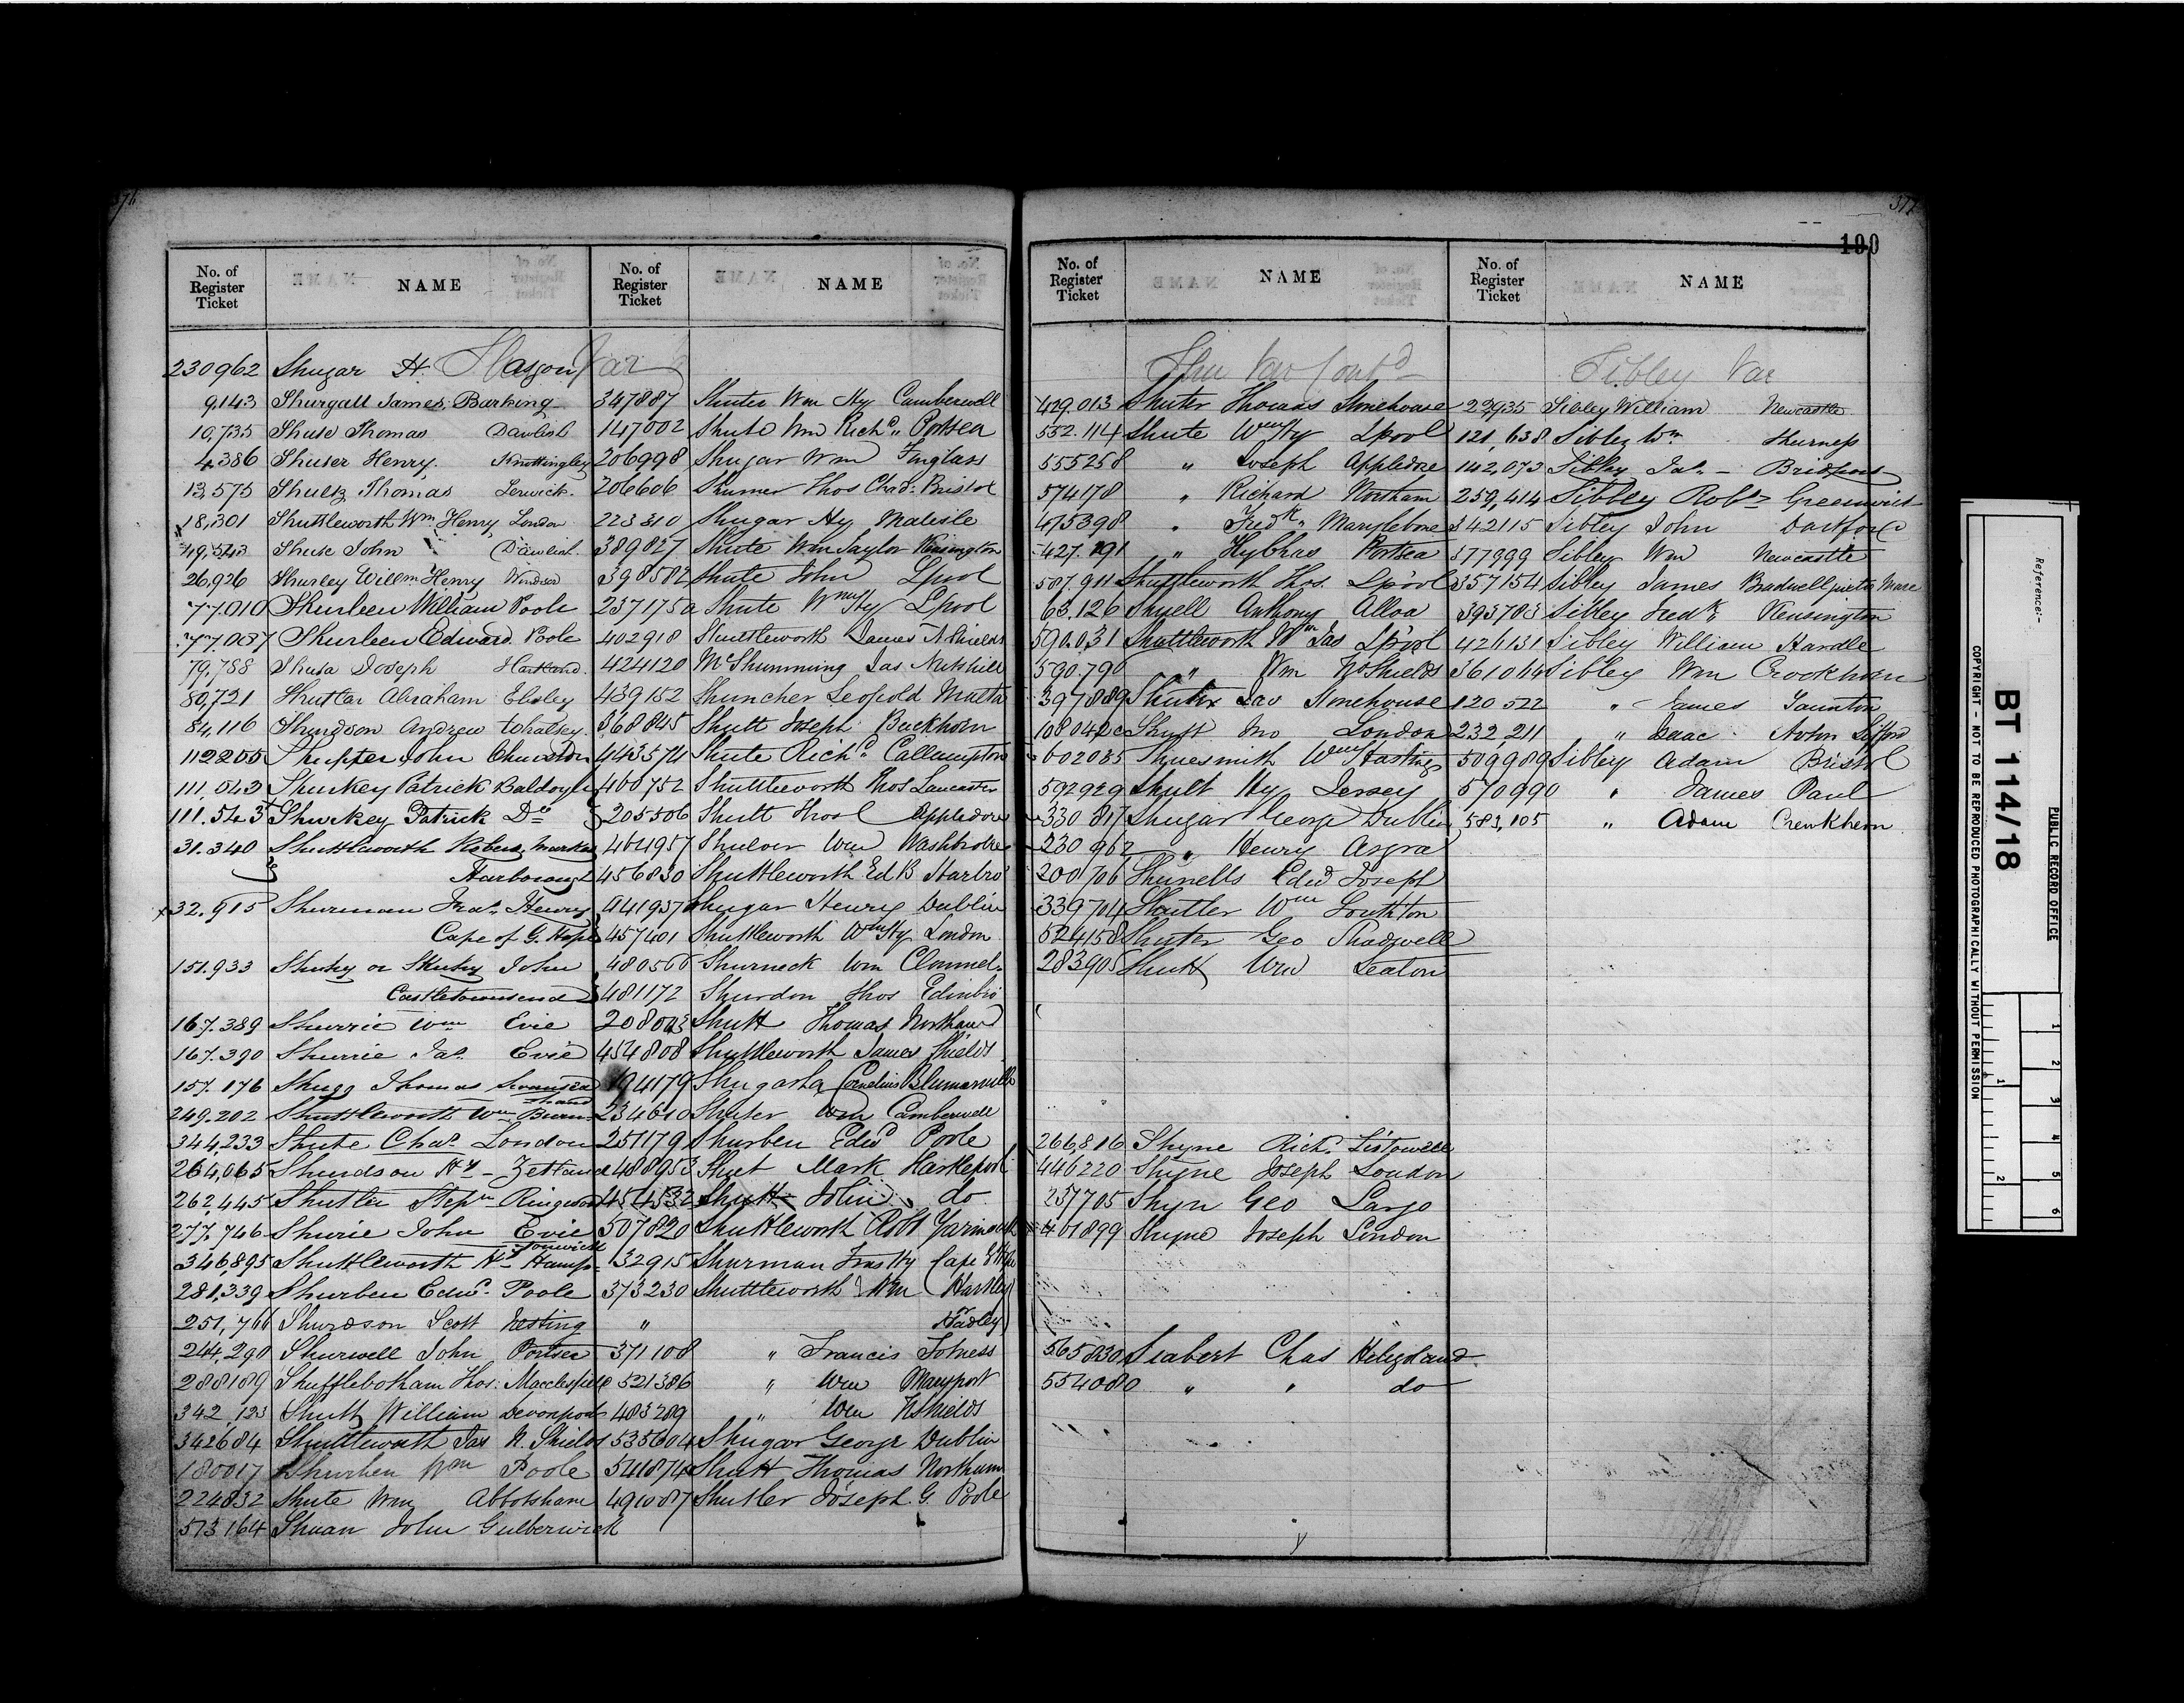 377
190
No. of Register Ticket NAME No. of Register Ticket NAME
230962 Shugar H.
9,143 Shurgall James, Barking
10,735 Shuse Thomas Dawlish
4,386 Shuser Henry. Knottingley
13,575 Shultz Thomas Lerwick.
18,301 Shuttleworth Wm Henry London
49,543 Shuse John Dawlish
26,926 Shurley Willm Henry Windsor
77.010 Shurben William Poole
77.037 Shurben Edward Poole
79,788 Shusa Joseph Hartland
80,721 Shutlar Abraham Ebley
84,116 Shundson Andrew Whalsey
112255 John
111,543 Shurkey Patrick Baldoyle
111.543 Shurkey Patrick Do
31.340 Shuttleworth Robert, Market
Harborough
32.915 Shurman Fras. Henry
Cape of G. Hope
151.933 Shuhy or Skuhy John
Castletownsend
167.389 Shurrie Wm Evie
167.390 Shurrie Jas. Evie
157.176 Shugg Thomas Swansea
249.202 Shuttleworth Wm
344,233 Shute Chas. London
264,065 Shundson Hy - Zetland
262,445 Shutler Stepn Ringwood
277,746 Shurie John Evie
346,895 Shuttleworth Hy Hamp
281,339 Shurben Edwd. Poole
251,766 Shurdson Scott Nesting
244,290 Shurwell John Portsea
288189 Shufflebotham Thos: Macclesfield
342,123 Shutt William Devonport
342684 Shuttleworth Jas N. Shields
180017 Shurben Wm Poole
224832 Shute Wm Abbotsham
573164 Shuan John Gulberwick
347887 Shuter Wm Hy Camberwell
147002 Shute Wm Richd. Portsea
206998 Shugar Wm Finglass
206606 Shumer Thos Chas: Bristol
223310 Shugar Hy Malisle
389827 Shute Wm Taylor Kensington
398582 Shute John Lpool
237175 Shute Wm Hy Lpool
402918 Shuttleworth James N. Shields
424120 McShumming Jas Nutshill
439152 Shuncher Leopold Malta
368845 Shutt Joseph Buckhorn
443574 Shute Richd. Callumpton
400752 Shuttleworth Thos Lancaster
205506 Shutt Thos Appledore
464957 Shulver Wm Washbrooke
456830 Shuttleworth Ed B Harbro
441937 Shugar Henry Dublin
457401 Shuttleworth Wm Hy London
480566 Shurneck Wm Clonmel.
481172 Shurdon Thos Edinbro
208043 Shutt Thomas Northam
454808 Shuttleworth James Shields
194179 Shugarta Cornelius
234610 Shuter Wm Camberwell
251179 Shurben Edwd Poole
488953 Shuet Mark Hartlepool
454532 Shutt John do
507820 Shuttleworth Robt Yarmouth
132915 Shurman Fras Hy Cape G Hope
373230 Shuttleworth Wm (Hartley
" or Hadley)
371108 " Francis Totness
521386 " Wm Maryport
483289 " Wm N Shields
535604 Shugar George Dublin
541874 Shutt Thomas Northam
491087 Shutler Joseph. G. Poole
No. of Register Ticket NAME No. of Register Ticket NAME
Shu Var Contd
429.013 Shuter Thomas Stonehouse
552.114 Shute Wm Hy Lpool
555258 " Joseph Appledore
574178 " Richard Northam
475398 " Fredk. Marylebone
427.191 " Hy Chas Portsea
587.911 Shuttleworth Thos. Lpool
63.126 Shuell Anthony Alloa
590.031 Shuttleworth Wm Jas Lpool
590.790 " Wm No Shields
397889 Shuter Jas Stonehouse
108042 Shutt Jno London
602035 Shuesmith Wm Hastings
592929 Shult Hy Jersey
330817 Shugar George Dublin
230962 " Henry
200706 Shunells Edwd Joseph
339704 Shutler Wm Southton
524158 Shuter Geo Shadwell
283905 Shutt Wm Seaton
266,816 Shyne Richd. Listowell
446220 Shyne Joseph London
257705 Shyn Geo Largo
401899 Shyne Joseph London
565830 Siabert Chas Heligoland
554080 " " do
Sibley Var
22935 Sibley William Newcastle
121,638 Sibley Wm.
142,073 Sibley Jas. - Bridport
259,414 Sibley Robt. Greenwich
342115 Sibley John Dartford
377999 Sibley Wm Newcastle
357154 Sibley James Bradwell juxta Mare
393783 Sibley Fredk. Kensington
426131 Sibley William Hardle
361064 Sibley Wm Crookhorn
120522 " James Taunton
232,211 " Isaac Aston
509989 Sibley Adam Bristol
570990 " James Paul
583,105 " Adam Crenkhern
Reference:-
PUBLIC RECORD OFFICE
BT 114/18
COPYRIGHT - NOT TO BE REPRODUCED PHOTOGRAPHICALLY WITHOUT PERMISSION
1 2 3 4 5 6
1 2